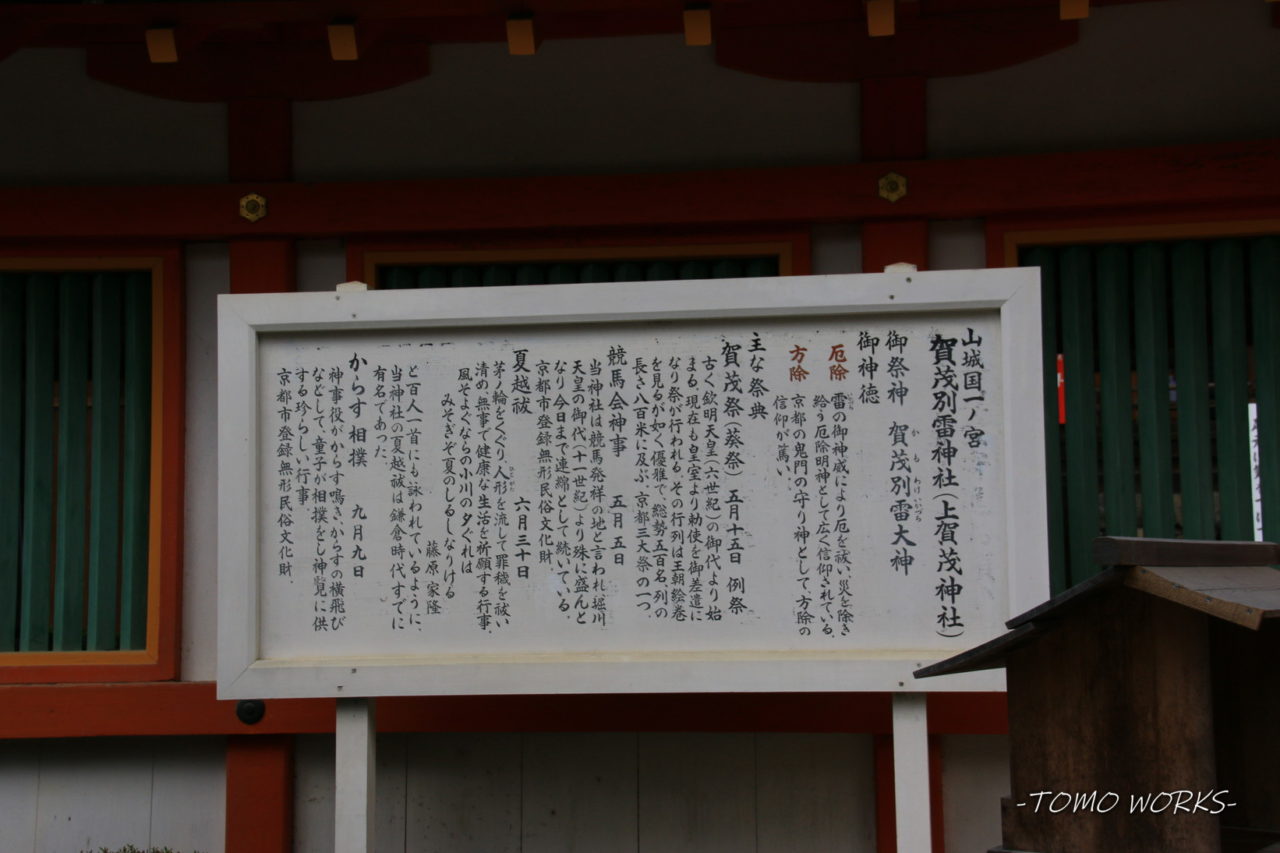 山城国一ノ宮
賀茂別雷神社(上賀茂神社)
御祭神 賀茂別雷大神
かもわけいかづち
御神徳
厄除 雷の御神威により厄を祓い災を除き
給う厄除明神として広く信仰されている。
方除 京都の鬼門の守り神として、方除の
信仰が篤い。
主な祭典
賀茂祭(葵祭) 五月十五日 例祭
古く欽明天皇(六世紀)の御代より始
まる。現在も皇室より勅使を御差遣に
なり祭が行われる。その行列は王朝絵巻
を見るが如く優雅で、総勢五百名、列の
長さ八百米に及ぶ。京都三大祭の一つ。
競馬会神事 五月五日
当神社は競馬発祥の地と言われ堀川
天皇の御代(十一世紀)より殊に盛んと
なり今日まで連綿として続いている。
京都市登録無形民俗文化財。
夏越祓 六月三十日
茅ノ輪をくぐり人形を流して罪穢を祓い
ひとがた
清め無事で健康な生活を祈願する行事。
風そよぐならの小川の夕ぐれは
みそぎぞ夏のしるしなりける
藤原家隆
と百人一首にも詠われているように、
当神社の夏越祓は鎌倉時代すでに
有名であった。
からす相撲 九月九日
神事役がからす鳴き、からすの横飛び
などして、童子が相撲をし神覧に供
する珍らしい行事
京都市登録無形民俗文化財。
-TOMO WORKS-